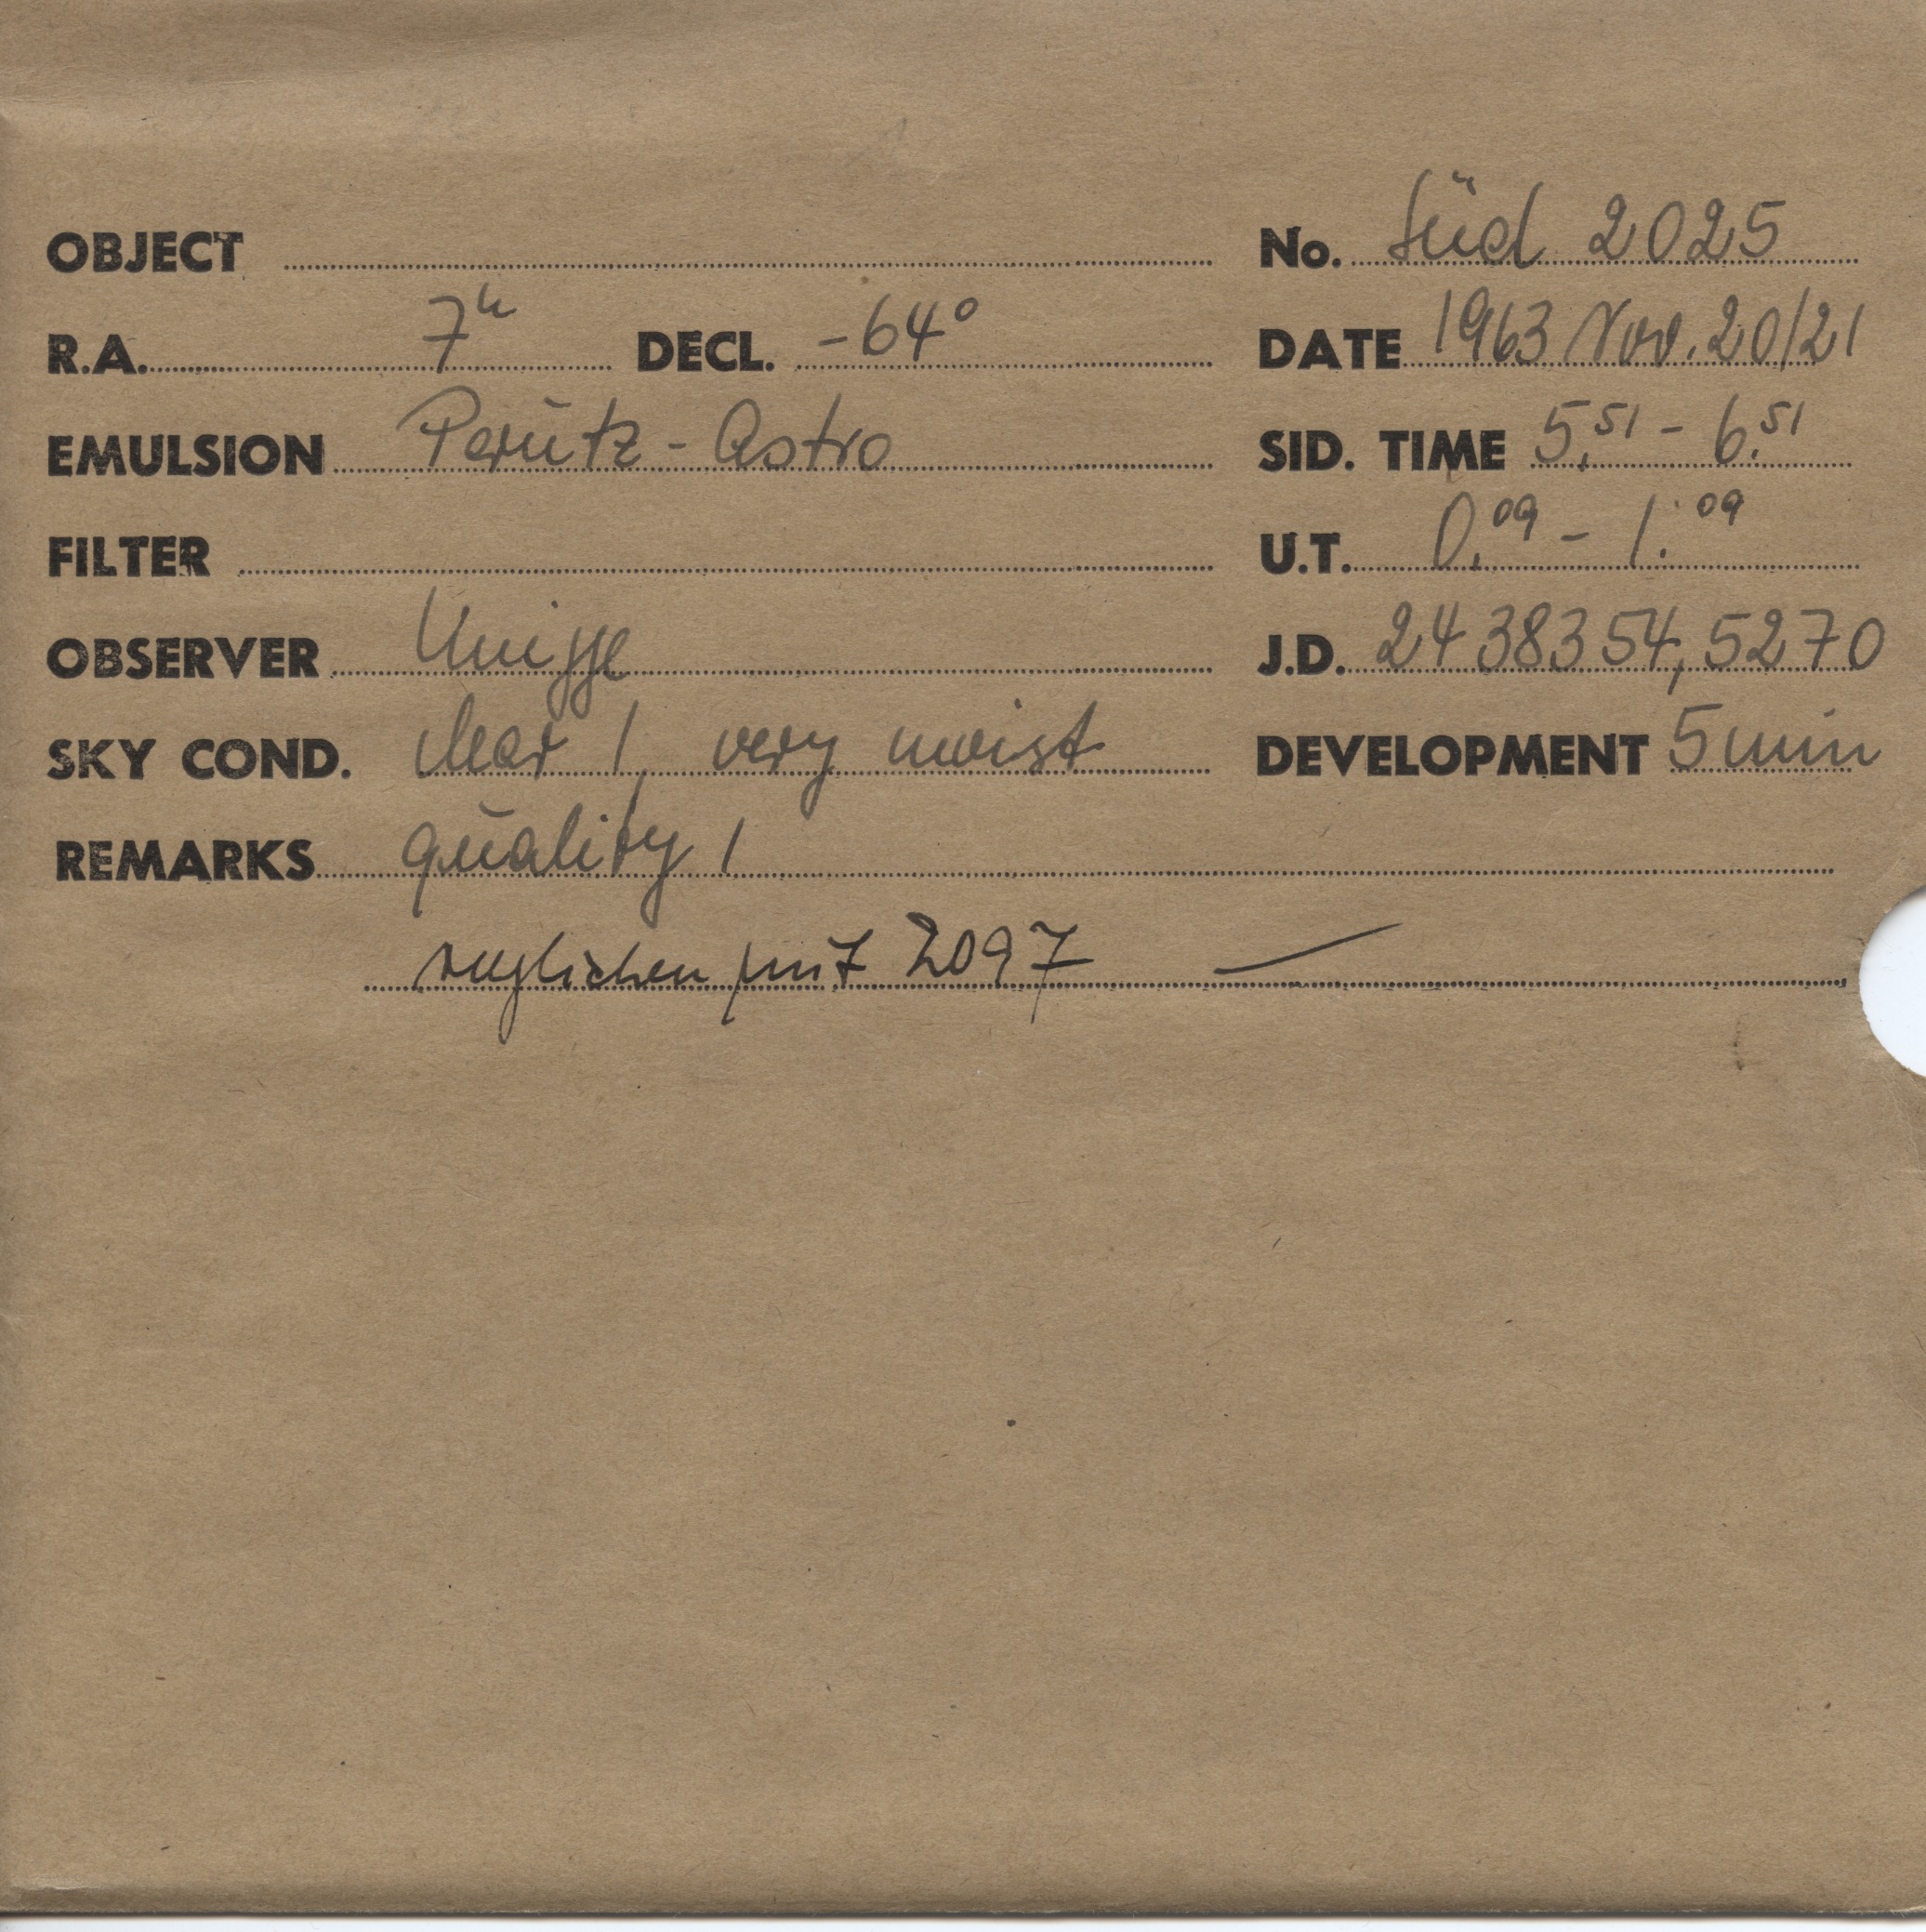 OBJECT No. Süd 2025
R.A. 7h DECL. -64° DATE 1963 Nov. 20/21
EMULSION Perutz - Astro SID. TIME 5.51 - 6.51
FILTER U.T. 0.09 - 1.09
OBSERVER Knigge J.D. 2438354,5270
SKY COND. clear 1, very moist DEVELOPMENT 5 min
REMARKS quality 1
verglichen mit 2097